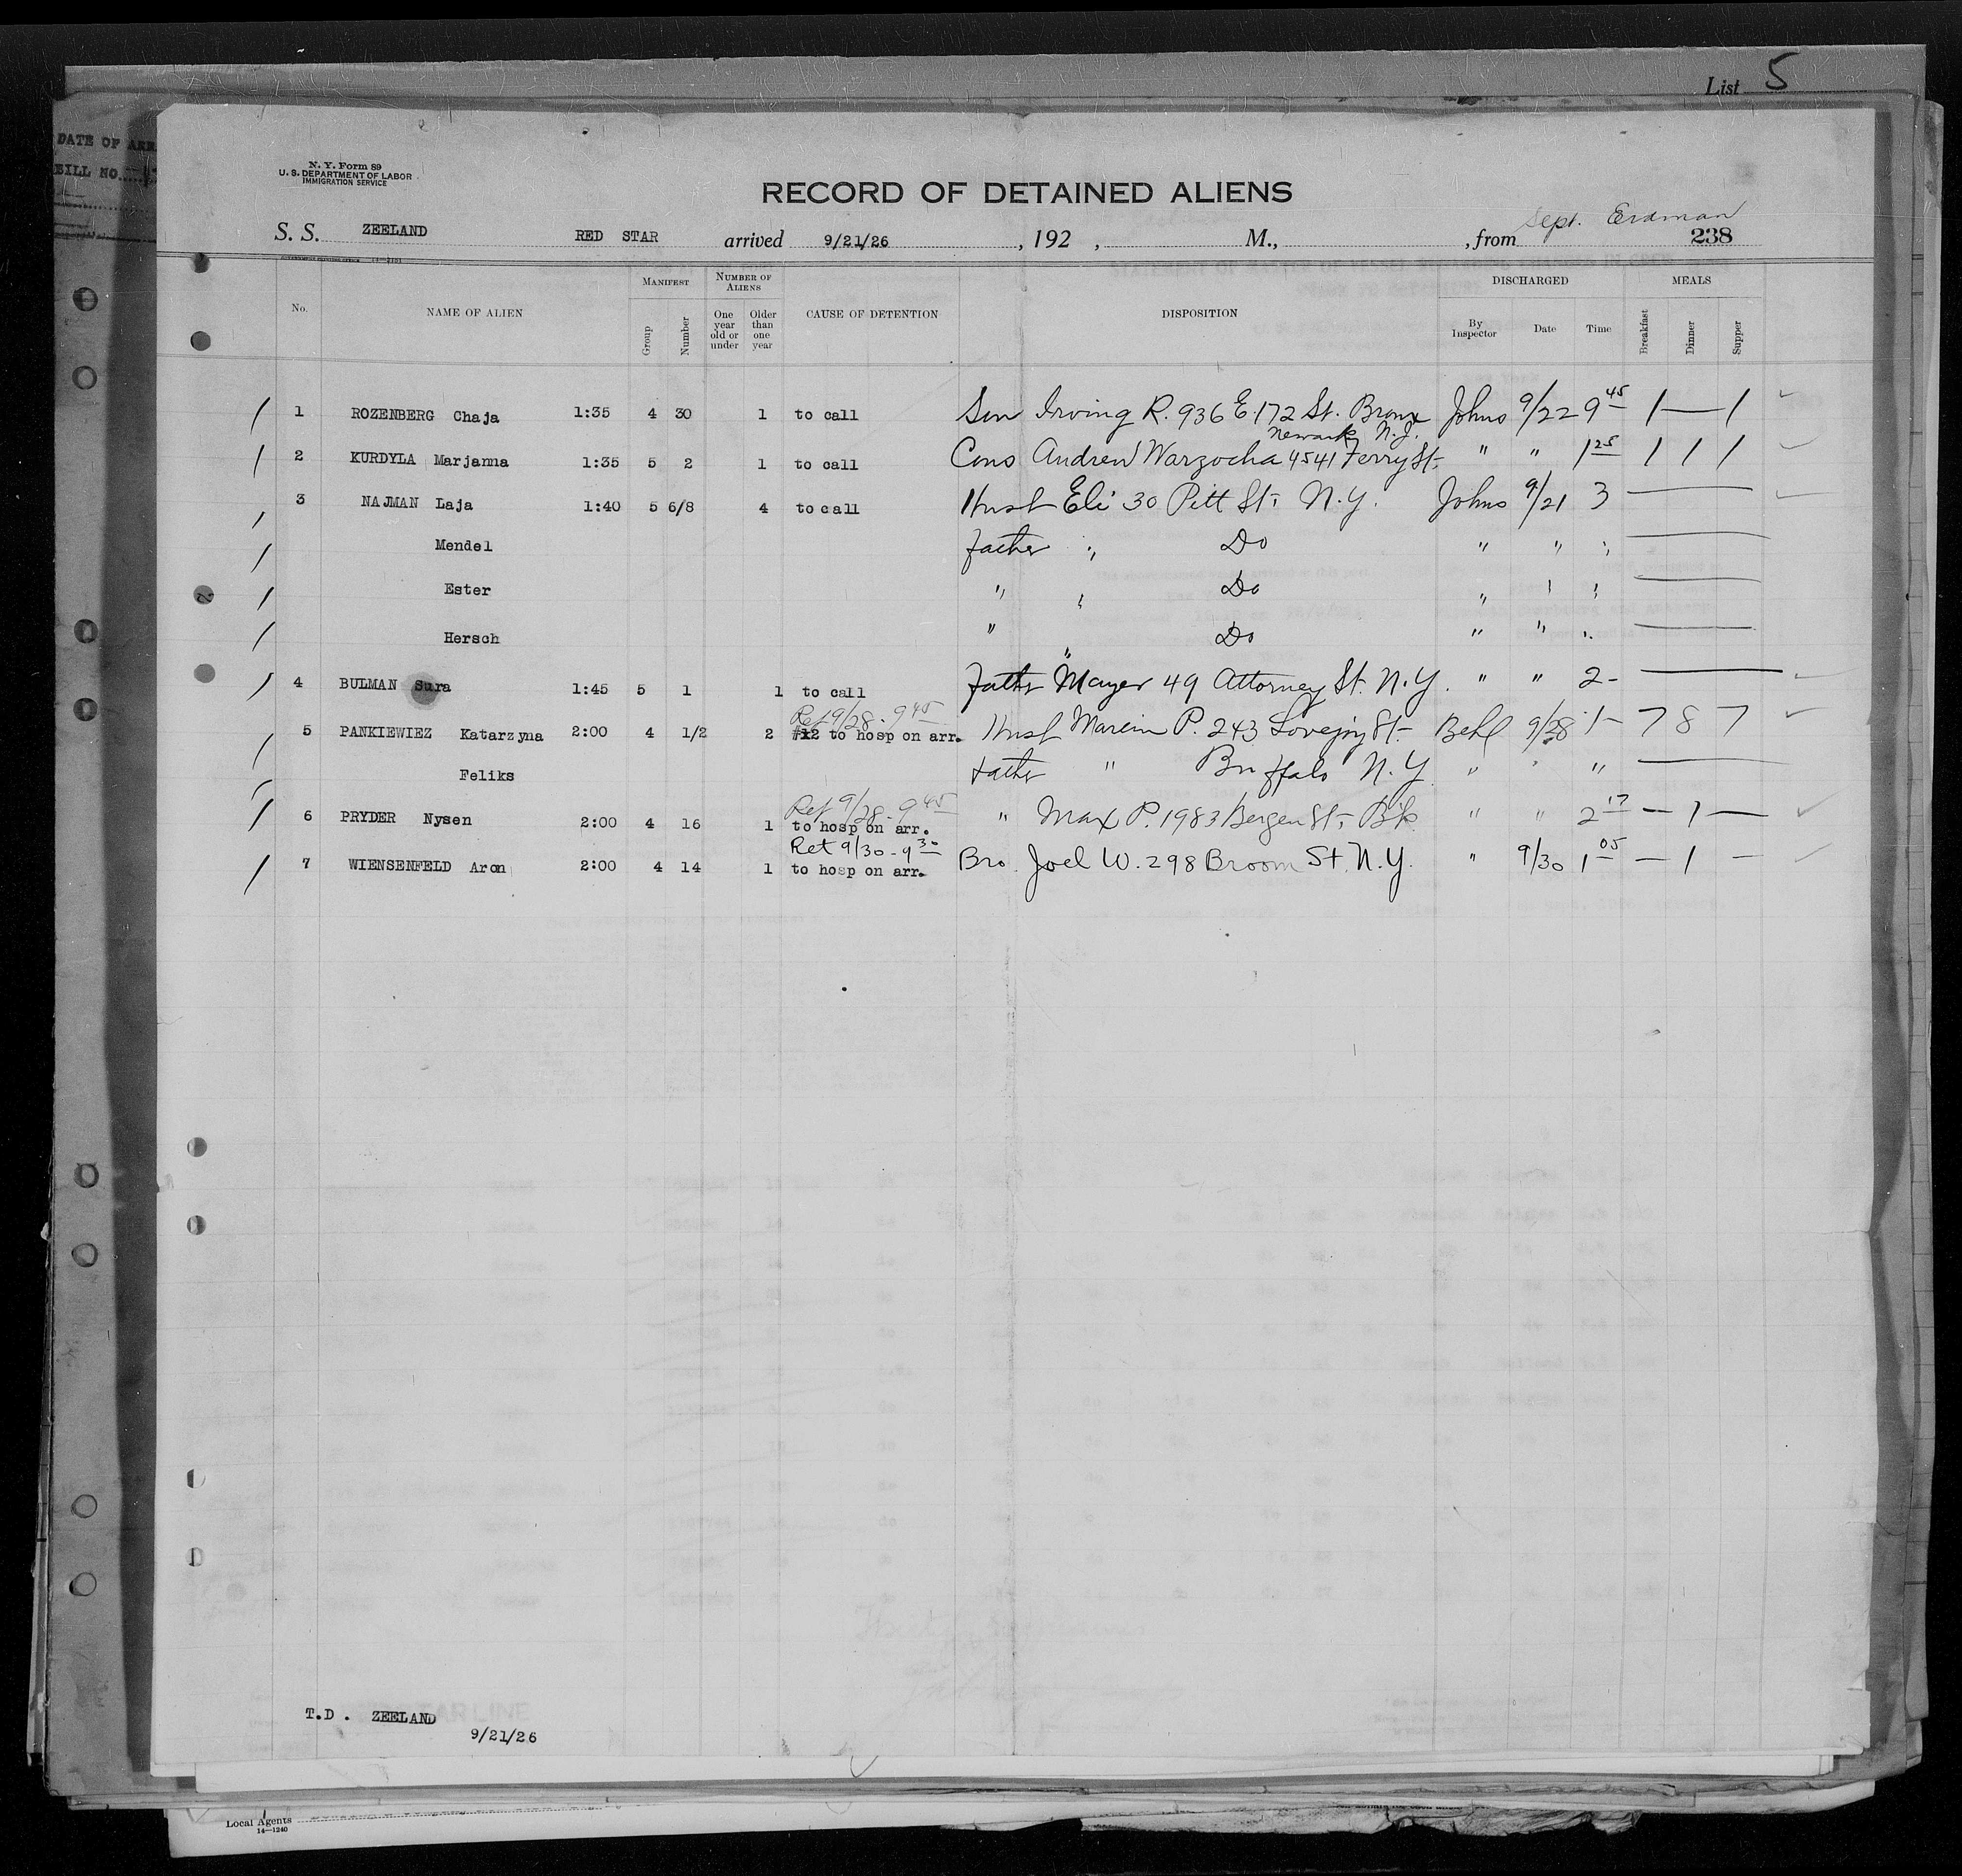 List 5
DATE OF ARR
BILL NO.
N. Y. Form 89
U. S. DEPARTMENT OF LABOR
IMMIGRATION SERVICE
RECORD OF DETAINED ALIENS
Sept. Erdman
S. S. ZEELAND RED STAR arrived 9/21/26, 192 , M., , from 238
No. NAME OF ALIEN MANIFEST Group Number NUMBER OF ALIENS One year old or under Older than one year CAUSE OF DETENTION DISPOSITION DISCHARGED By Inspector Date Time MEALS Breakfast Dinner Supper
1 ROZENBERG Chaja 1:35 4 30 1 to call Son Irving R. 936 E. 172 St. Bronx Johns 9/22 9 45 1 — 1
Newark, N.J.
2 KURDYLA Marjanna 1:35 5 2 1 to call Cons Andrew Warzocha 4541 Ferry St. " " 1 25 1 1 1
3 NAJMAN Laja 1:40 5 6/8 4 to call Husb Eli 30 Pitt St. N.Y. Johns 9/21 3 —
Mendel Father " Do " " " —
Ester " " Do " " " —
Hersch " " Do " " " —
4 BULMAN Sura 1:45 5 1 1 to call Father Mayer 49 Attorney St. N.Y. " " 2- —
Ret 9/28 - 9 45
5 PANKIEWIEZ Katarzyna 2:00 4 1/2 2 #12 to hosp on arr. Husb Marcin P. 243 Lovejoy St. Behl 9/28 1- 7 8 7
Feliks Father " Buffalo N.Y. " " " —
Ret 9/28 - 9 45
6 PRYDER Nysen 2:00 4 16 1 to hosp on arr. " Max P. 1983 Bergen St. Bk " " 2 17 — 1 —
Ret 9/30 - 9 30
7 WIENSENFELD Aron 2:00 4 14 1 to hosp on arr. Bro. Joel W. 298 Broom St. N.Y. " 9/30 1 05 — 1 —
T.D. ZEELAND
9/21/26
Local Agents
14—1240